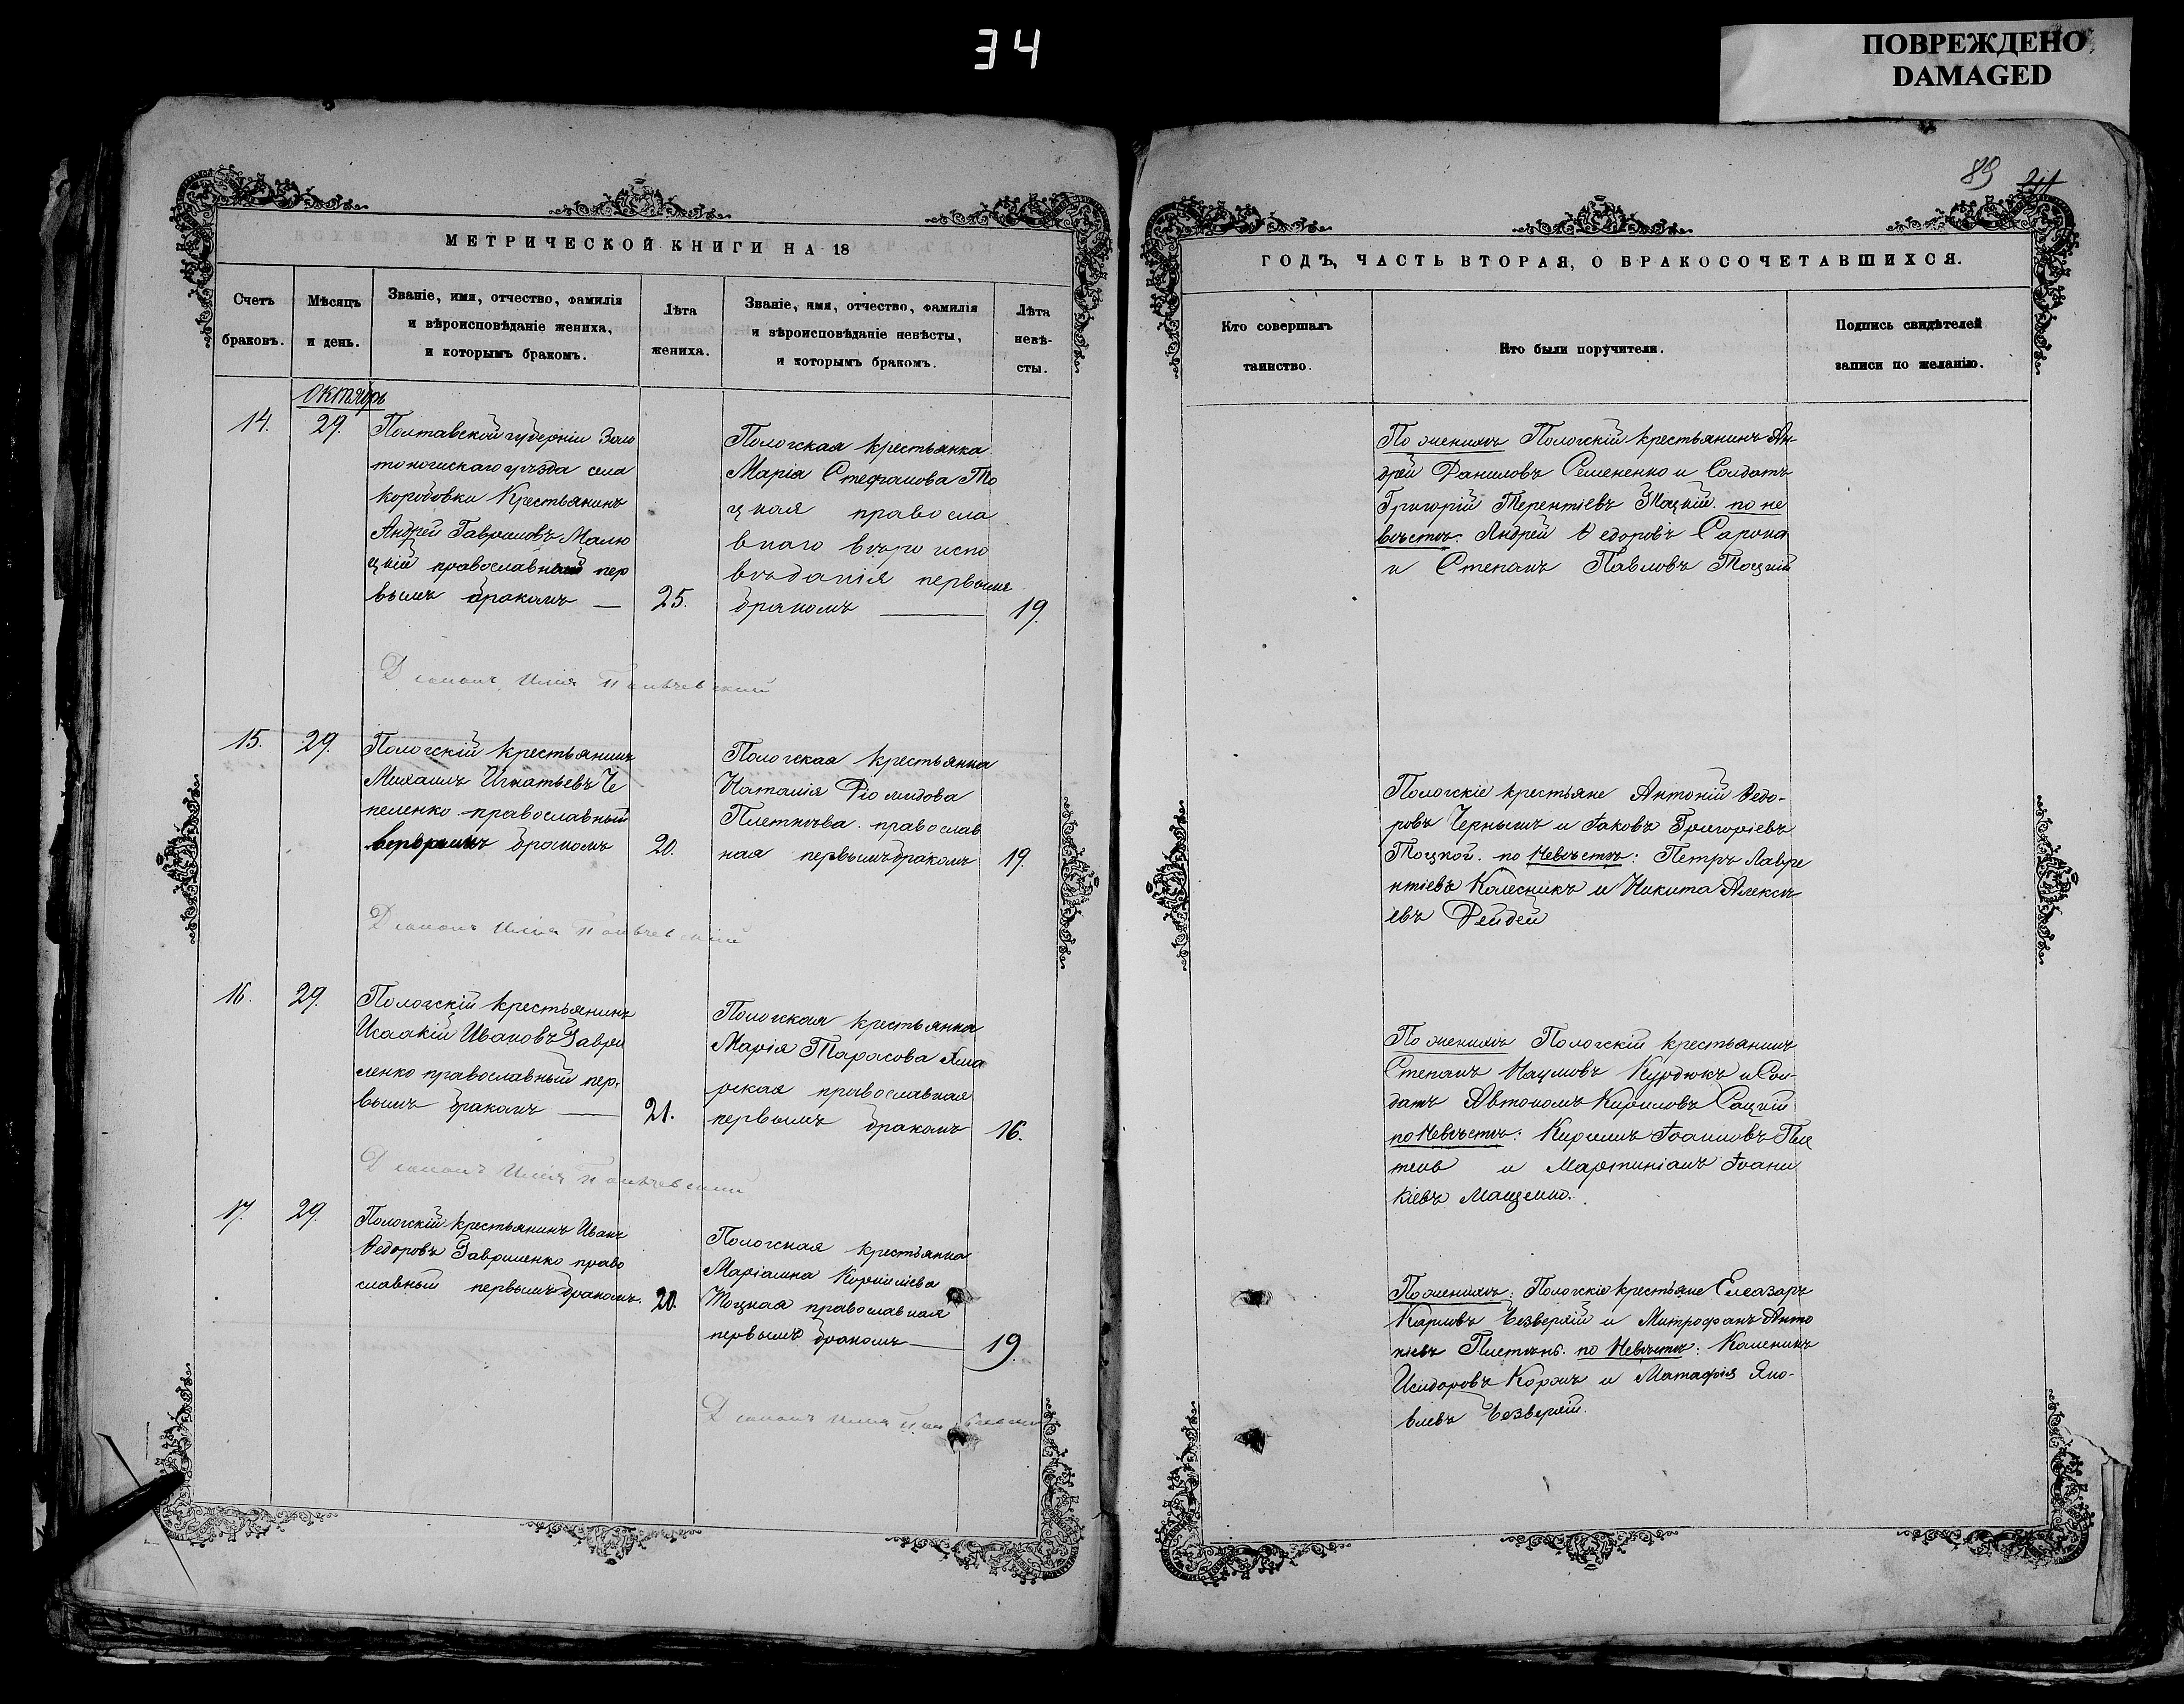 34
ПОВРЕЖДЕНО
DAMAGED
МЕТРИЧЕСКОЙ КНИГИ НА 18
Счетъ браковъ.
Мѣсяцъ и день.
Званіе, имя, отчество, фамилія
и вѣроисповѣданіе жениха,
и которымъ бракомъ.
Лѣта жениха.
Званіе, имя, отчество, фамилія
и вѣроисповѣданіе невѣсты,
и которымъ бракомъ.
Лѣта невѣ-
сты.
Октябрь
14.
29.
Полтавской губерніи Золо
тоношскаго уѣзда села
Коробовки Крестьянинъ
Андрей Гавриловъ Малю
цкій православный пер
вымъ бракомъ —
25.
Пологская крестьянка
Марія Стефанова То
цкая правосла
внаго вѣро испо
вѣданія первымъ
бракомъ —
19.
Діаконъ Илія
15.
29.
Пологскій крестьянинъ
Михаилъ Игнатьевъ Че
пеленко православный
бракомъ
20.
Пологская крестьянка
Наталія Діомидова
православ
ная первымъ бракомъ
19.
Діаконъ Илія
16.
29.
Пологскій крестьянинъ
Исаакій Ивановъ Гаври
ленко православный пер-
вымъ бракомъ —
21.
Пологская крестьянка
Марія Тарасова
православная
первымъ бракомъ
16.
Діаконъ Илія
17.
29.
Пологскій крестьянинъ Иванъ
Ѳедоровъ Гавриленко право
славный первымъ бракомъ.
20.
Пологская крестьянка
Маріамна Корниліева
Тоцкая православная
первымъ бракомъ —
19.
Діаконъ Илія
89
ГОДЪ, ЧАСТЬ ВТОРАЯ, О БРАКОСОЧЕТАВШИХСЯ.
Кто совершалъ
таинство.
Кто были поручители.
Подпись свидѣтелей
записи по желанію.
По женихѣ Пологскій крестьянинъ Ан-
дрей Даниловъ Семененко и Солдатъ
Григорій Терентіевъ Тоцкій. по не
вѣстѣ: Андрей Ѳедоровъ Сарона
и Степанъ Павловъ Тоцкій
Пологскіе крестьяне Антоній Ѳедо-
ровъ Чернышъ и Іаковъ Григоріевъ
Тоцкой. по Невѣстѣ: Петръ Лавре
нтіевъ Колесникъ и Никита Алексѣ
евъ Фейдей
По женихѣ Пологскій крестьянинъ
Степанъ Наумовъ Курдюкъ и Сол-
датъ Автономъ Кириловъ Сацкій
по Невѣстѣ: Кирилъ Іоанновъ
и Мартиніанъ Іоани
кіевъ
По женихѣ: Пологскіе крестьяне Елеазаръ
Карповъ Безверхій и Митрофанъ Анто
ніевъ по Невѣстѣ: Калиникъ
Исидоровъ Корж и Матафія Яко-
влевъ Безверхій.